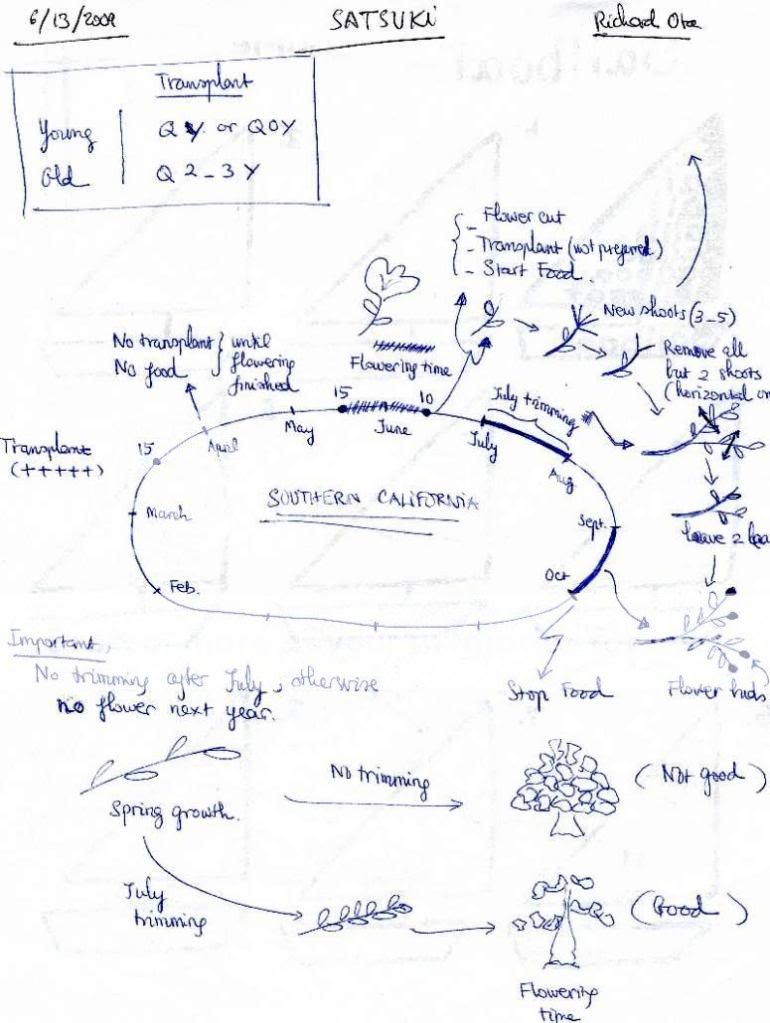 6/13/2009 SATSUKI Richard Ota
Transplant
Young Q Y or QOY
Old Q 2-3 Y
- Flower cut
- Transplant (not preferred)
- Start Food.
New shoots (3-5)
Remove all
but 2 shoots
(horizontal
No transplant } until
No food flowering
finished
Flowering time
15 10
May June July
July trimming
Aug
Transplant
(+++++)
15
April
March
SOUTHERN CALIFORNIA
Sept.
leave 2
Feb.
Oct
Important,
No trimming after July, otherwise
no flower next year.
Stop Food
Flower buds
Spring growth.
No trimming
(Not good)
July
trimming
(Good)
Flowering
time